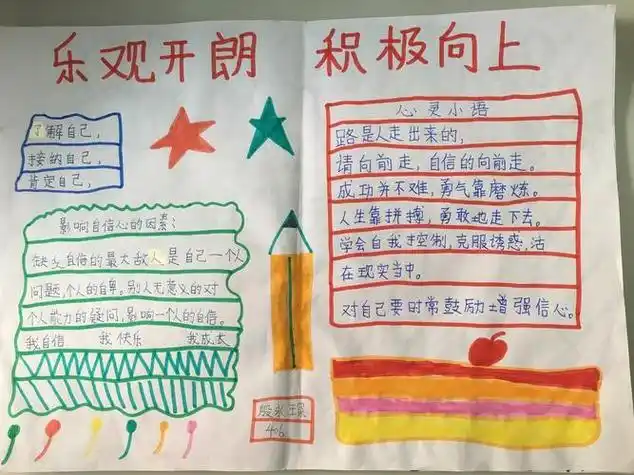 乐观开朗 积极向上
了解自己，
接纳自己，
肯定自己，
影响自信心的因素：
缺乏自信的最大敌人是自己一个人
问题，个人的自卑。别人无意义的对
个人能力的疑问，影响一个的自信。
我自信 我快乐 我成长
心灵小语
路是人走出来的，
请向前走，自信的向前走。
成功并不难，勇气靠磨炼。
人生靠拼搏，勇敢地走下去。
学会自我控制，克服诱惑，活
在现实当中。
对自己要时常鼓励增强信心。
殷永
406